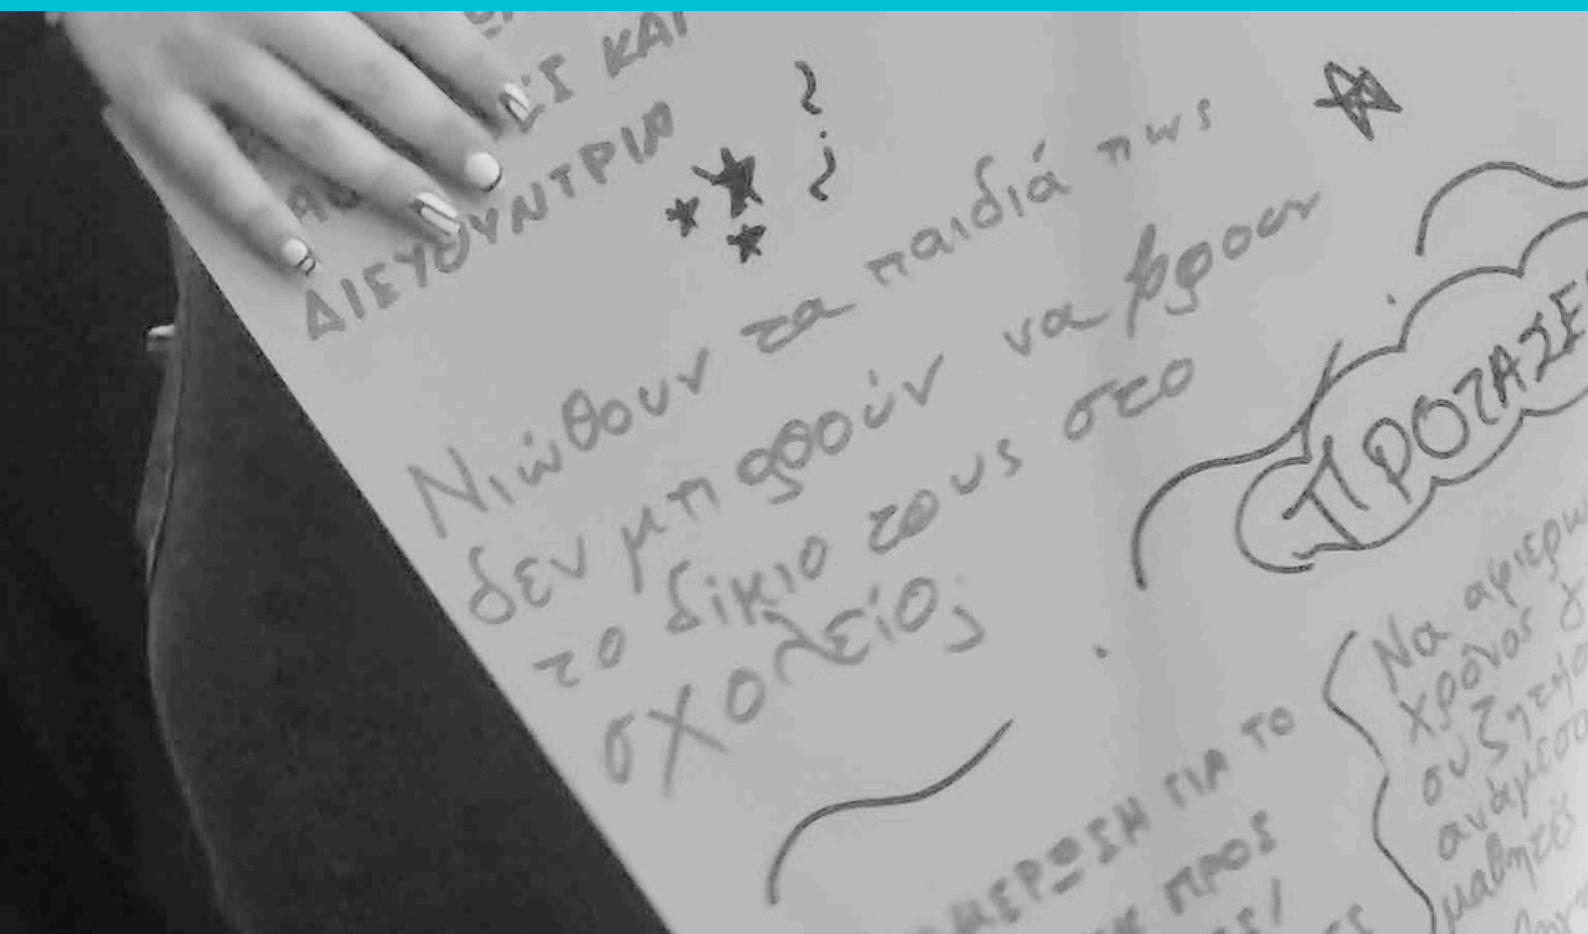 ΚΑΙ
ΔΙΕΥΘΥΝΤΡΙΑ
Νιώθουν τα παιδιά πως
δεν μπορούν να βρουν
το δίκιο τους στο
σχολείο;
ΠΡΟΤΑΣΕ
Να αφιερω
χρόνος
συζητησ
ανάμεσα
μαθητές
ΓΙΑ ΤΟ
ΠΡΟΣ